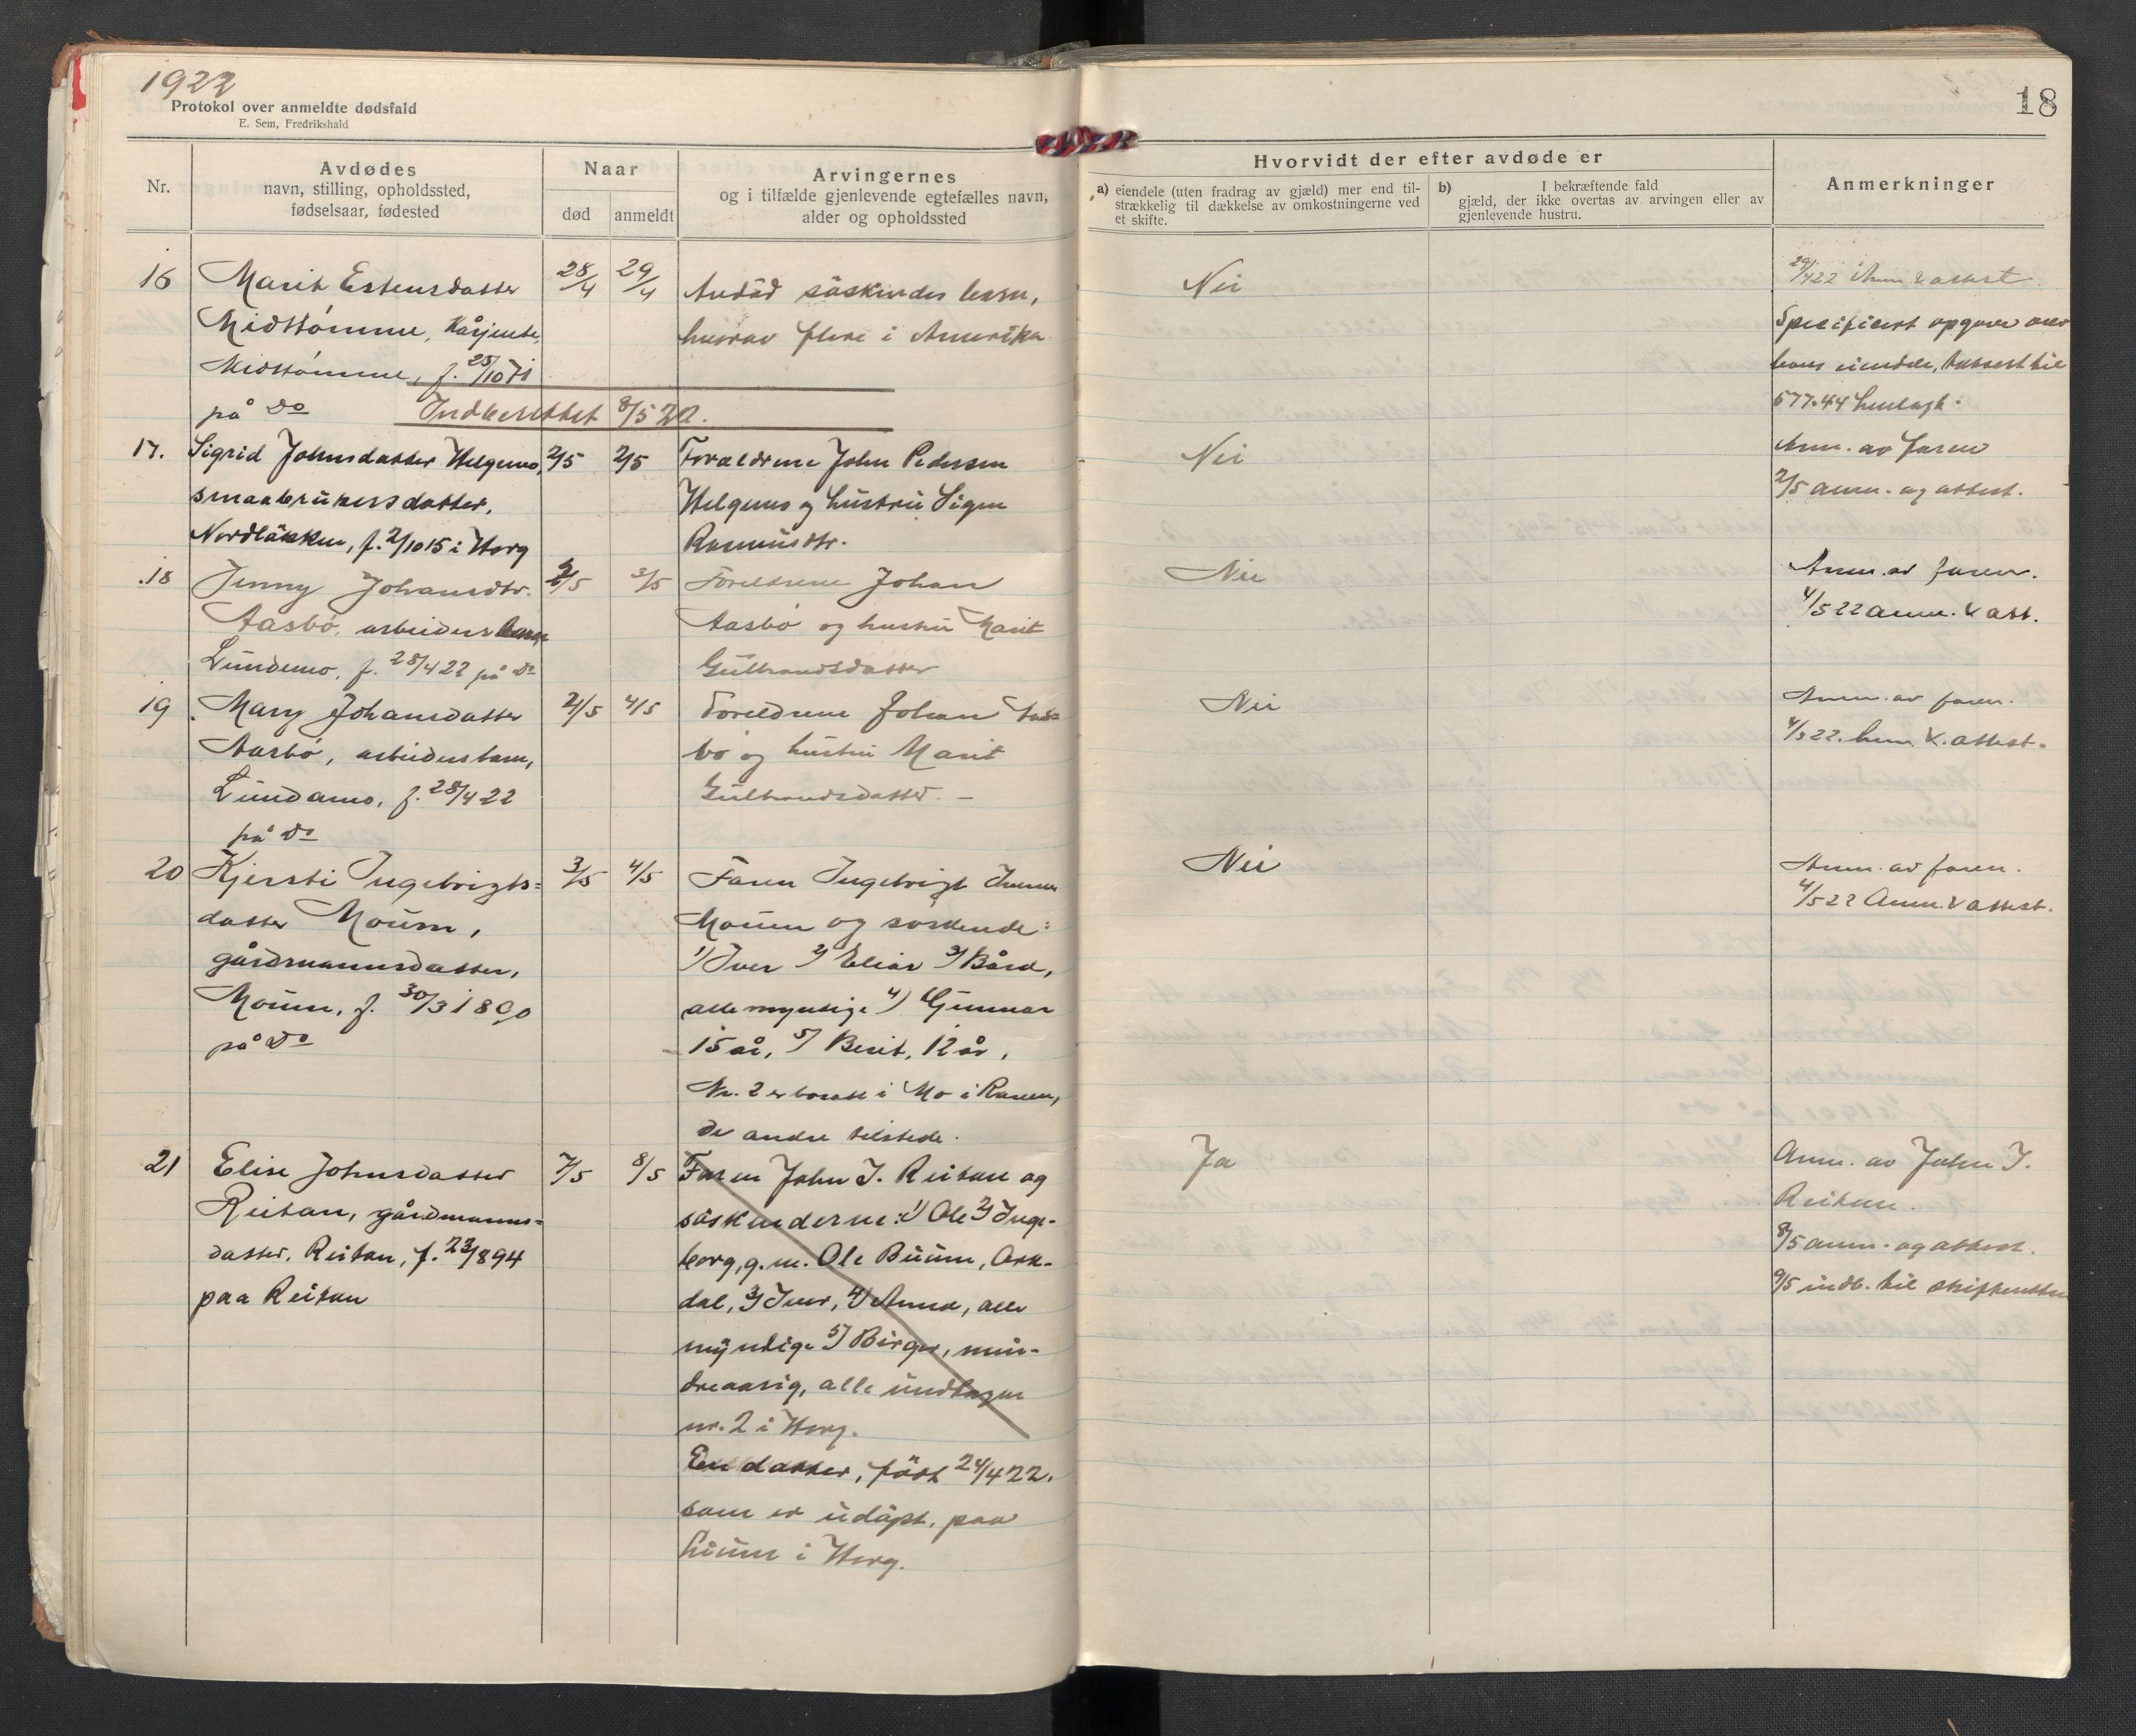 1922
Protokol over anmeldte dødsfald
E. Sem, Fredrikshald
18
Nr.
Avdødes
navn, stilling, opholdssted,
fødselsaar, fødested
Naar
død
anmeldt
Arvingernes
og i tilfælde gjenlevende egtefælles navn,
alder og opholdssted
Hvorvidt der efter avdøde er
a) eiendele (uten fradrag av gjæld) mer end til-
strækkelig til dækkelse av omkostningerne ved
et skifte.
b) I bekræftende fald
gjæld, der ikke overtas av arvingen eller av
gjenlevende hustru.
Anmerkninger
16
Marit Estensdatter
Midttømme, Kårjente,
Midttømme, f. 28/10 71
på do
28/4
29/4
Avdød søskendes barn,
hvorav flere i Amerika.
Nei
29/4 22 Anm & attest
Specificert opgave over
hans eiendele, taksert til
577.44 henlagt.
Indberettet 8/5 22.
17.
Sigrid Johnsdatter Helgemo,
smaabrukersdatter,
Nordløkken, f. 2/10 15 i Horg
2/5
2/5
Forældrene John Pedersen
Helgemo og hustru Sigen
Rasmusdtr.
Nei
Anm. av faren
2/5 anm. og attest.
18
Jenny Johansdtr.
Aasbø, arbeidersbarn,
Lundemo, f. 28/4 22 på do
2/5
3/5
Foreldrene Johan
Aasbø og hustru Marit
Gulbrandsdatter
Nei
Anm. av faren.
4/5 22 anm. & att.
19
Mary Johansdatter
Aasbø, arbeidersbarn,
Lundamo, f. 28/4 22
på do
2/5
4/5
Foreldrene Johan Aas=
bø og hustru Marit
Gulbrandsdatter. —
Nei
Anm. av faren.
4/5 22. Anm. & attest.
20
Kjersti Ingebrigts=
datter Moum,
gårdmannsdatter,
Moum, f. 30/3 1890
på do
3/5
4/5
Faren Ingebrigt Iversen
Moum og søskende:
1) Iver 2) Elias 3) Bård,
alle myndige 4) Gunnar
15 år, 5) Berit, 12 år,
Nr. 2 er bosatt i Mo i Ranen,
de andre tilstede.
Nei
Anm. av faren.
4/5 22 Anm. & attest.
21
Elise Johnsdatter
Reitan, gårdmanns=
datter, Reitan, f. 23/ 894
paa Reitan
7/5
8/5
Faren John I. Reitan og
søskenderne: 1) Ole 2) Inge-
borg, g. m. Ole Buum, Ork-
dal, 3) Iver, 4) Anna, alle
myndige 5) Birger, min-
dreaarig, alle undtagen
nr. 2 i Horg.
En datter, født 24/4 22.
som er udøpt, paa
i Horg.
Ja
Anm. av John I.
Reitan.
8/5 anm. og attest.
9/5 indb. til skifteretten